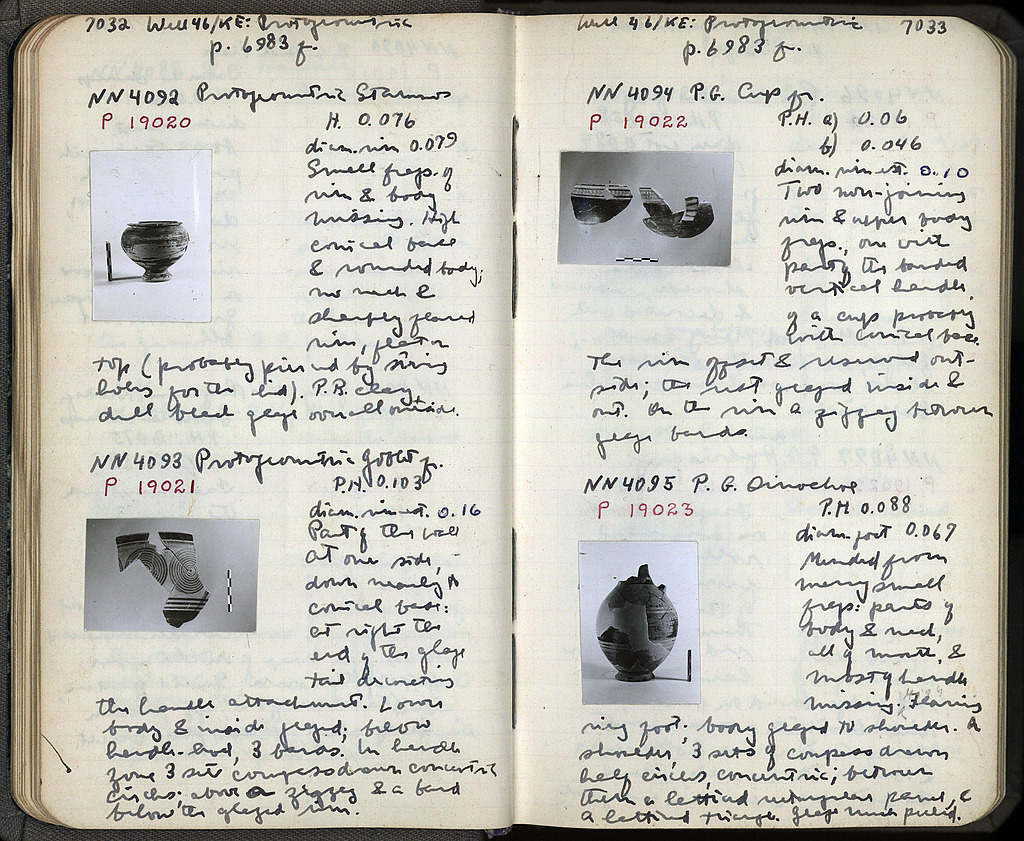 7032 Well 46/KE: Protogeometric
p. 6983 f.
NN 4092 Protogeometric Stamnos
P 19020
H. 0.076
diam. rim 0.079
Small frags. of
rim & body
missing. High
conical base
& rounded body;
no neck &
sharply flared
rim, flat on
top (probably pierced by string
holes for the lid). P.B. clay,
dull black glaze overall outside.
NN 4093 Protogeometric goblet fr.
P 19021
P.H. 0.103
diam. rim est. 0.16
Part of the wall
at one side,
down nearly to
conical base:
at right the
end of the glaze
tail decorating
the handle attachment. Lower
body & inside glazed; below
handle-level, 3 bands. In handle
zone 3 sets compass drawn concentric
circles; above a zigzag & a band
below the glazed rim.
Well 46/KE: Protogeometric 7033
p. 6983 f.
NN 4094 P.G. Cup fr.
P 19022
P.H. a) 0.06
b) 0.046
diam. rim est. 0.10
Two non-joining
rim & upper body
frags, one with
part of the banded
vertical handle,
of a cup probably
with conical base.
The rim offset & reserved out-
side; the rest glazed inside &
out. On the rim a zigzag between
glaze bands
NN 4095 P.G. Oinochoe
P 19023
P.H 0.088
diam. foot 0.067
Mended from
many small
frags: parts of
body & neck,
all of mouth, &
most of handle
missing. Flaring
ring foot; body glazed to shoulder. On
shoulder, 3 sets of compass drawn
half circles, concentric; between
them a latticed rectangular panel, &
a latticed triangle. Glaze much peeled.